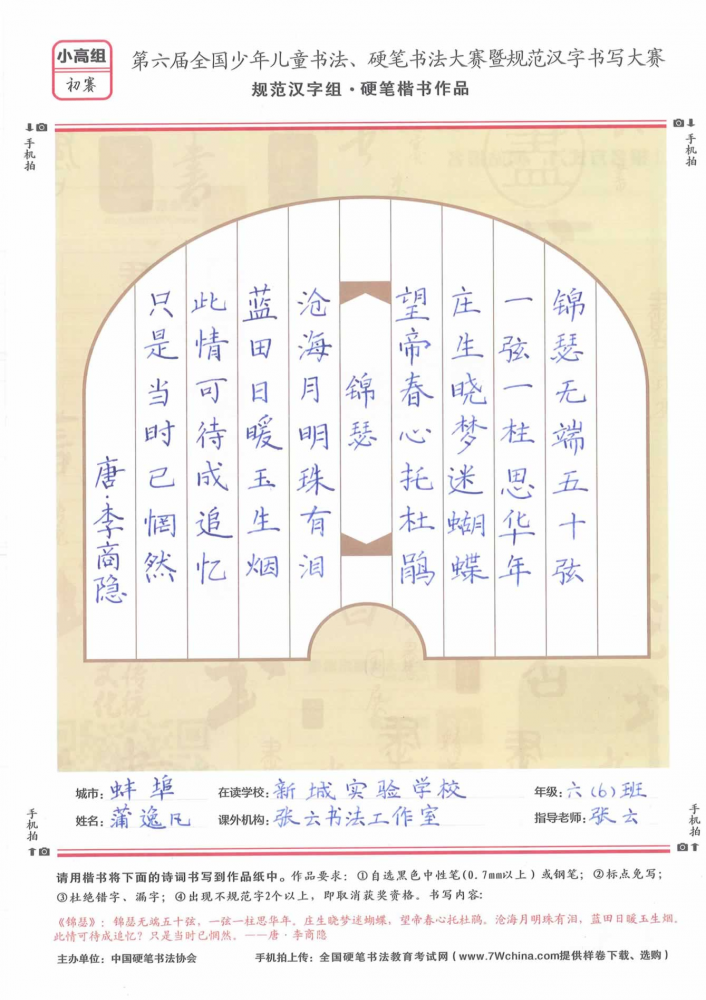 小高组
初赛
第六届全国少年儿童书法、硬笔书法大赛暨规范汉字书写大赛
规范汉字组·硬笔楷书作品
手机拍
手机拍
锦瑟无端五十弦
一弦一柱思华年
庄生晓梦迷蝴蝶
望帝春心托杜鹃
锦瑟
沧海月明珠有泪
蓝田日暖玉生烟
此情可待成追忆
只是当时已惘然
唐·李商隐
城市：蚌埠 在读学校：新城实验学校 年级：六（6）班
姓名：蒲逸凡 课外机构：张云书法工作室 指导老师：张云
手机拍
手机拍
请用楷书将下面的诗词书写到作品纸中。作品要求：①自选黑色中性笔(0.7mm以上）或钢笔；②标点免写；
③杜绝错字、漏字；④出现不规范字2个以上，即取消获奖资格。书写内容：
《锦瑟》：锦瑟无端五十弦，一弦一柱思华年。庄生晓梦迷蝴蝶，望帝春心托杜鹃。沧海月明珠有泪，蓝田日暖玉生烟。
此情可待成追忆？只是当时已惘然。——唐·李商隐
主办单位：中国硬笔书法协会 手机拍上传：全国硬笔书法教育考试网（www.7Wchina.com提供样卷下载、选购）